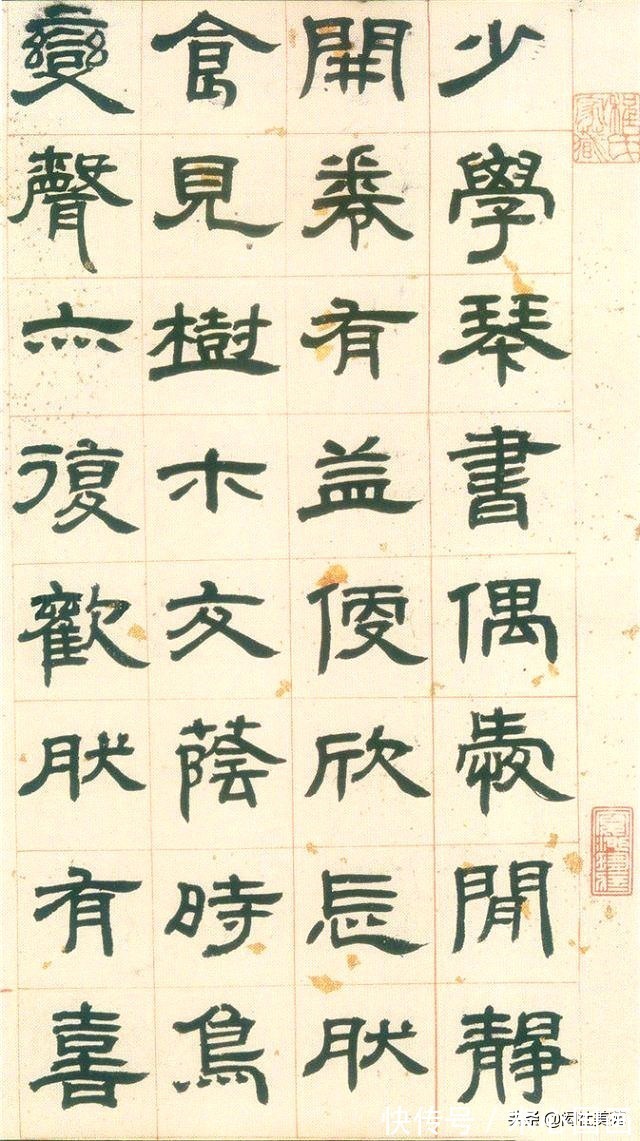 少學琴書偶愛閒靜
開卷有益便欣忘肰
食見樹木交蔭時鳥
變聲亦復歡肰有喜
快传号 /
头条